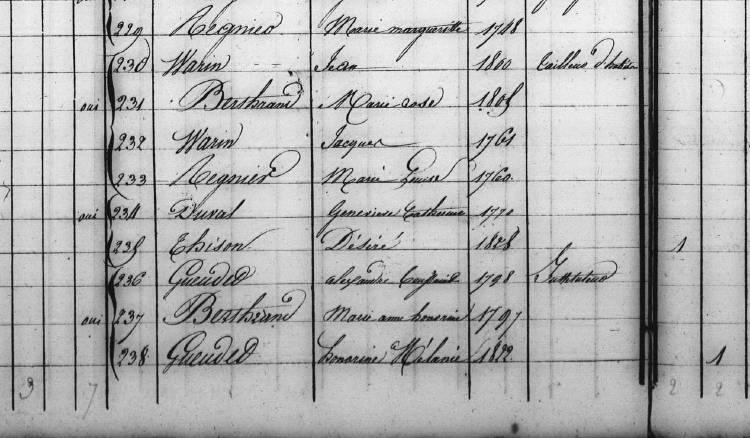 229 Regnier Marie margueritte 1748
230 Warin Jean 1800 tailleur d'habits
oui 231 Berthrand Marie rose 1805
232 Warin Jacques 1761
233 Regnier Marie Louise 1760
oui 234 Duval Genevieve Catherine 1770
235 Thison Désiré 1828 1
236 Gueuded alexandre 1798 Instituteur
oui 237 Berthrand Marie anne honorine 1797
238 Gueuded honorine Mélanie 1822 1
3 7 2 2